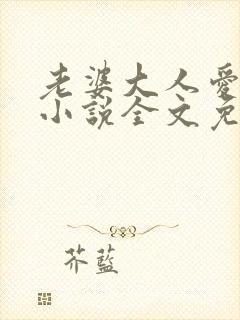 老婆大人愛
小說全文免
芥藍